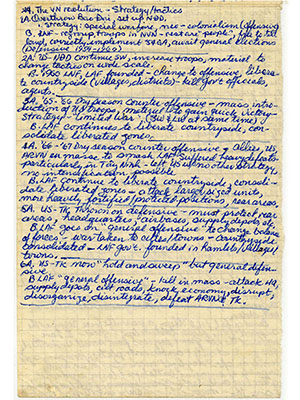 #9, The VN resolution - Strategy/Tactics
1A. Overthrow Bao Dai, set up NDD,
Strategy: special warfare, neo-colonialism (offensive)
B. LAF - regroup troops in NVN - restore people's
land, consult, implement 54GA, await general elections
(Defensive 1954-1960)
2A. '65 - HPD continue SW, increase troops, materiel to
change tactics on wide scale.
B. 1960 NLF, LAF founded - Change to offensive, libera-
te countryside (villages, districts) - kill gov't officials,
agents.
3A. '65-'66 Dry season counter offensive - mass. intro-
duction of US troops & materiel to gain quick victory -
Strategy - limited war (SW & LW at same time)
B. LAF continues to liberate countryside, con-
solidate liberated zones.
4A. '66-'67 Dry season counter offensive - allies, US,
ARVN en masse to smash LAF - suffered heavy defeats
particularly in Tay Ninh - left US w/ no other strategy
no intensification possible
B. LAF continue to liberate countryside, consoli-
date liberated zones - attack larger sized units,
more heavily fortified/protected positions, rear areas.
5A. US-TK thrown on defensive - must protect rear
areas - headquarters, airbases, supply depots, etc.
B. LAF goes on "general offensive" to change balance
of forces - war taken to cities/towns - countryside
consolidated - LAF gov't. founded in hamlets/villages/
towns.
6A. US-TK now "hold and sweep" but general defen-
sive
B. LAF "general offensive" - kill in mass - attack HQ,
supply depots, cut roads, knock economy, disrupt,
disorganize, disintegrate, defeat ARVN & TK.